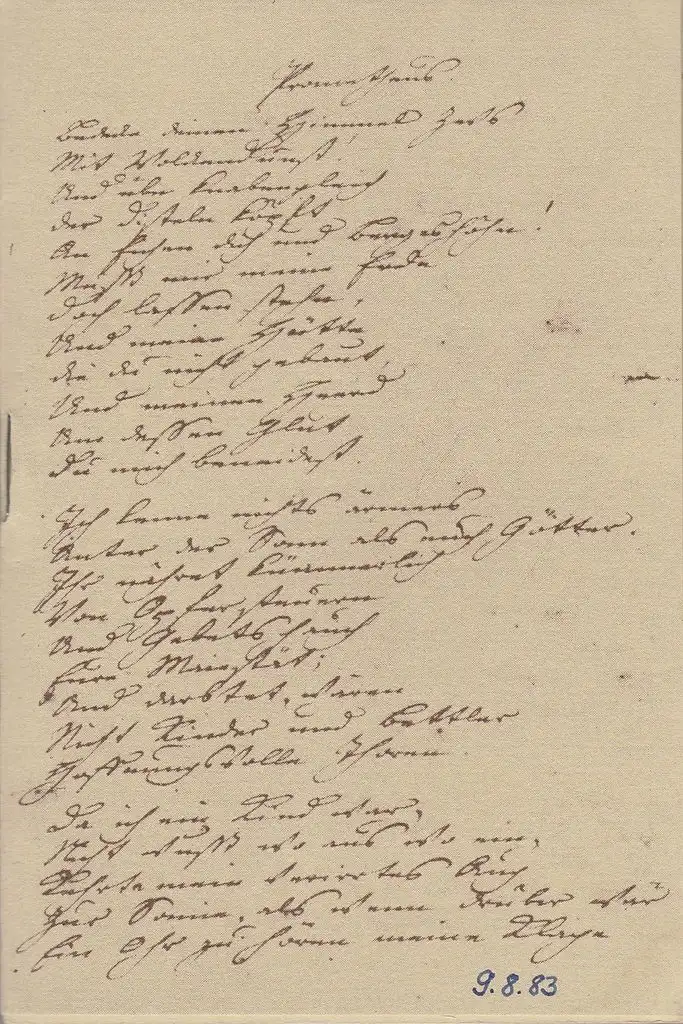 Prometheus.
Bedecke deinen Himmel Zevs
Mit Wolkendunst!
Und übe Knabengleich
der Disteln köpft
An Eichen dich und Bergeshöhn!
Musst mir meine Erde
doch lassen stehn,
Und meine Hütte
die du nicht gebaut,
Und meinen Heerd
Um dessen Glut
Du mich beneidest.
Ich kenne nichts ärmers
Unter der Sonn als euch Götter.
Ihr nähret kümmerlich
Von Opfersteuern
Und Gebetshauch
Eure Maiestät;
Und darbtet, wären
Nicht Kinder und Bettler
Hoffnungsvolle Thoren.
Da ich ein Kind war,
Nicht wusst wo aus wo ein,
Kehrte mein verirrtes Aug
Zur Sonne, als wenn drüber wär
Ein Ohr zu hören meine Klage
9.8.83